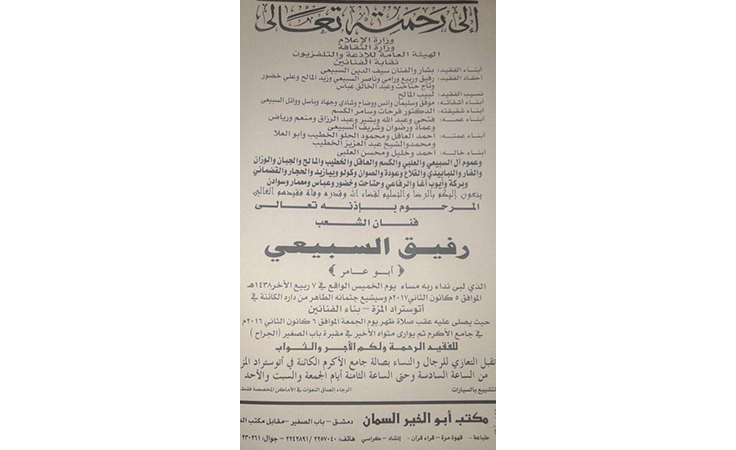 إلى رحمته تعالى
وزارة الإعلام
وزارة الثقافة
الهيئة العامة للإذعة والتلفزيون
نقابة الفنانين
أبناء الفقيد: بشار والفنان سيف الدين السبيعي
أحفاد الفقيد: رفيق وربيع ورامي وناصر السبيعي وزيد المالح وعلي خضور
وتاج حتاحت وعبد الخالق عباس
نسيب الفقيد: لبيب المالح
أبناء أشقائه: موفق وسليمان وأنس ووضاح وشادي وجهاد وباسل ووائل السبيعي
أبناء شقيقته: الدكتور فرحات وسامر الكسم
أبناء عمه: فتحي وعبد الله وبشير وعبد الرزاق ومنعم ورياض
وعماد ورضوان وشريف السبيعي
أبناء عمته: أحمد العاقل ومحمود الحلو الخطيب وأبو العلا
ومحمد والشيخ عبد العزيز الخطيب
أبناء خاله: أحمد وخليل ومحسن العلبي
وعموم آل السبيعي والعلبي والكسم والعاقل والخطيب والمالح والجبان والوزان
والفار واللبابيدي والقلاع وعودة والصوان وكولو وبيازيد والحجار والقضماني
وبركة وأيوب آغا والرفاعي وحتاحت وخضور وعباس ومعمار وسوادن
ينعون إليكم بالرضا والتسليم لقضاء الله وقدره وفاة فقيدهم الغالي
المرحوم بإذنه تعالى
فنان الشعب
رفيق السبيعي
(أبو عامر)
الذي لبى نداء ربه مساء يوم الخميس الواقع في ٧ ربيع الآخر ١٤٣٨هـ
الموافق ٥ كانون الثاني ٢٠١٧م وسيشيع جثمانه الطاهر من داره الكائنة في
أتوستراد المزة - بناء الفنانين
حيث يصلى عليه عقب صلاة ظهر يوم الجمعة الموافق ٦ كانون الثاني ٢٠١٦م
في جامع الأكرم ثم يوارى مثواه الأخير في مقبرة باب الصغير (الجراح)
للفقيد الرحمة ولكم الأجر والثواب
تقبل التعازي للرجال والنساء بصالة جامع الأكرم الكائنة في أتوستراد المز
من الساعة السادسة وحتى الساعة الثامنة أيام الجمعة والسبت والأحد
التشييع بالسيارات
الرجاء إلصاق النعوات في الأماكن المخصصة فقط
مكتب أبو الخير السمان دمشق - باب الصغير - مقابل مكتب
طباعة - قهوة مرة - قراء قرآن - إنشاد - كراسي هاتف: ٢٢٥٧٠٤٠ / ٢٢٤٢٨٩١ - جوال: ٢٣٠٢٦١